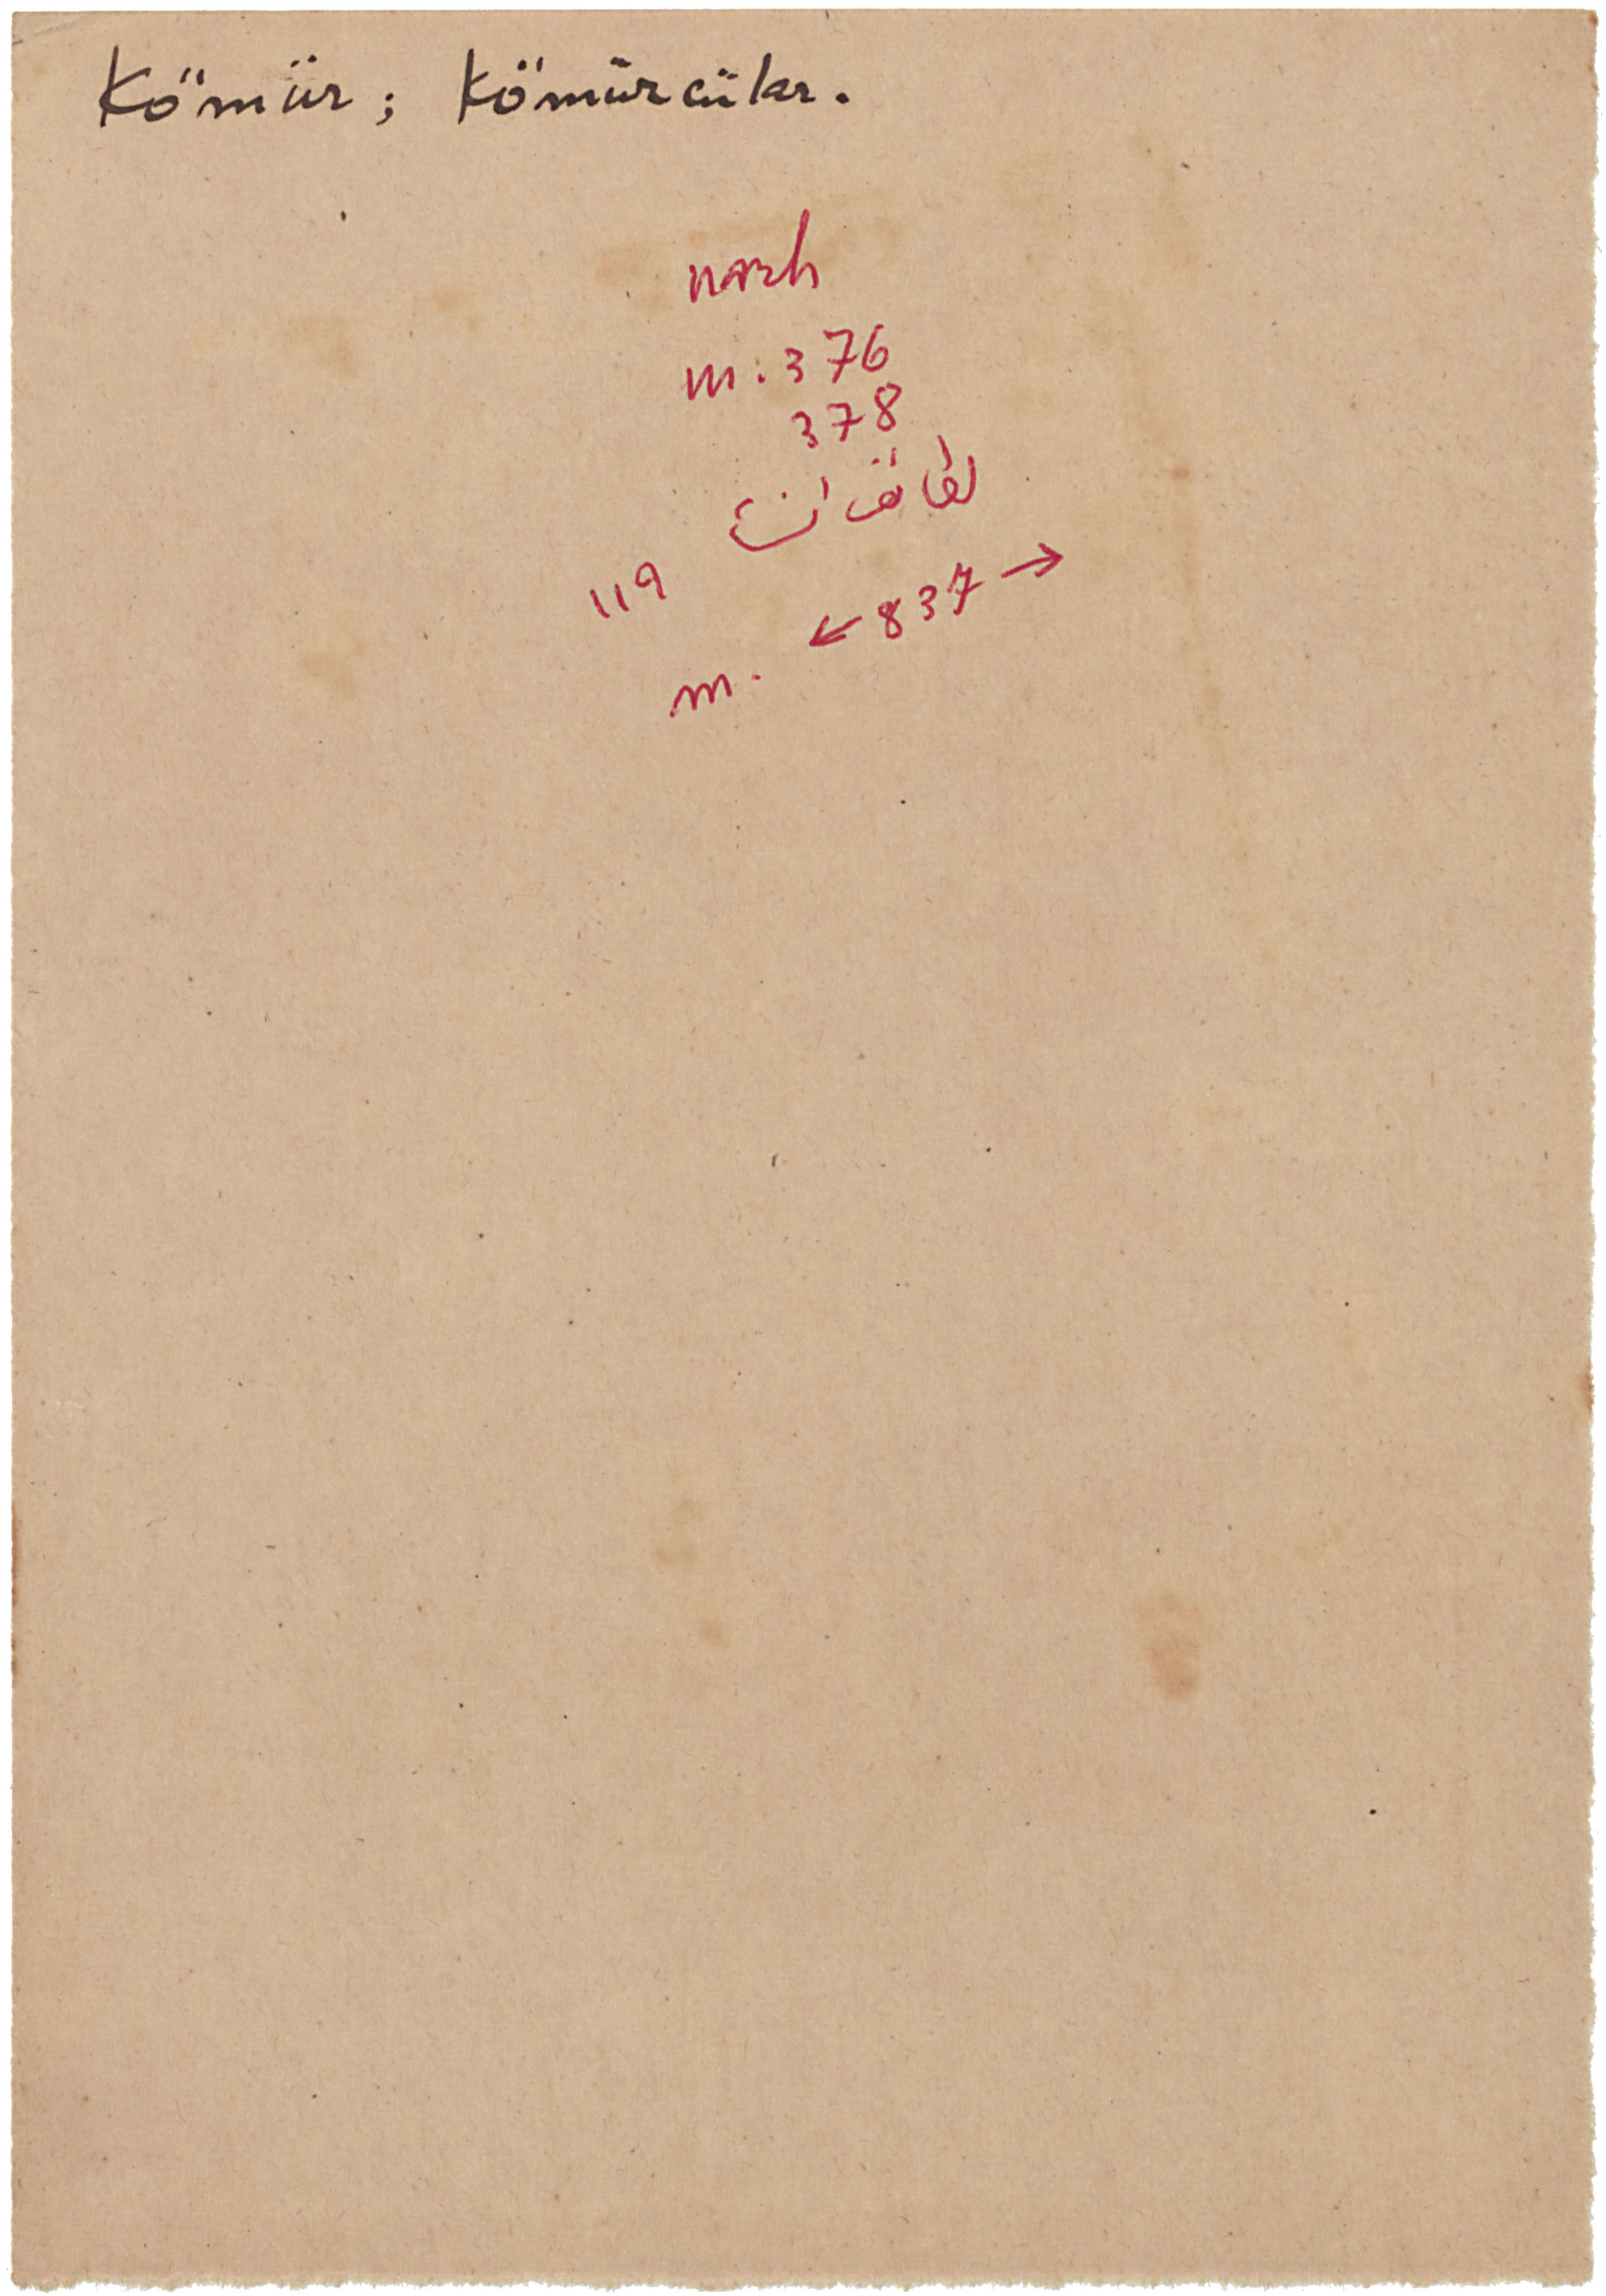 Kömür; Kömürcüler.
narh
m: 376
378
119
← 837 →
m.